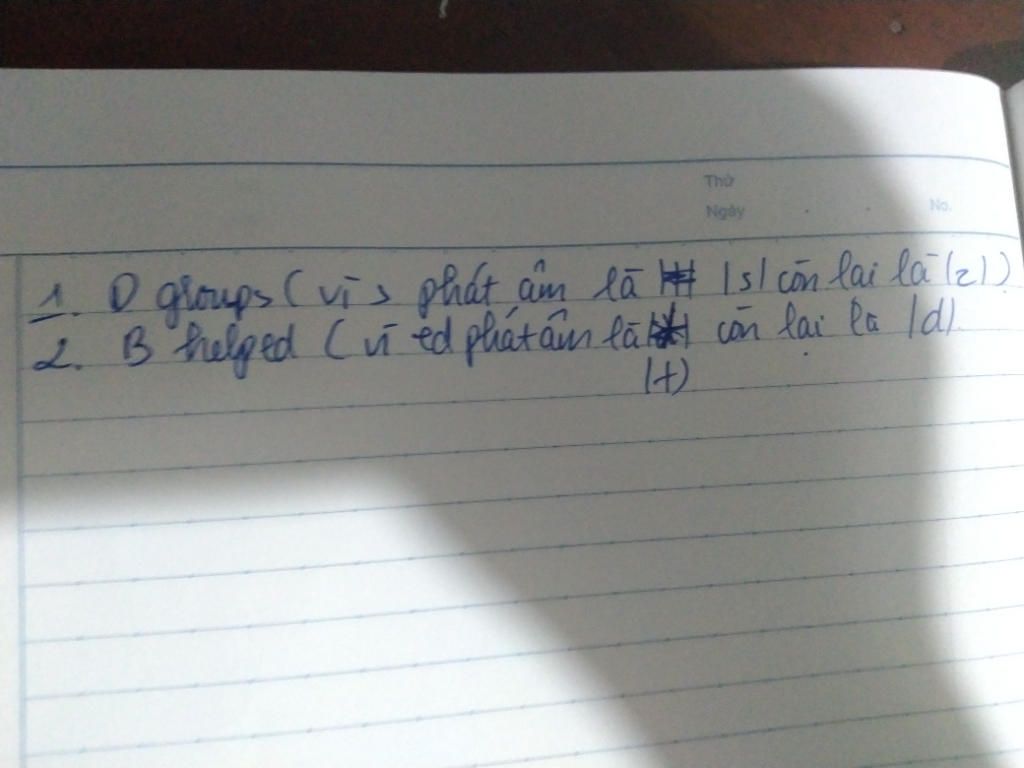 Thứ
Ngày . . No.
1. D groups ( vì s phát âm là |s| còn lai là |z| )
2. B helped ( vì ed phát âm là còn lại là |d|
|t)